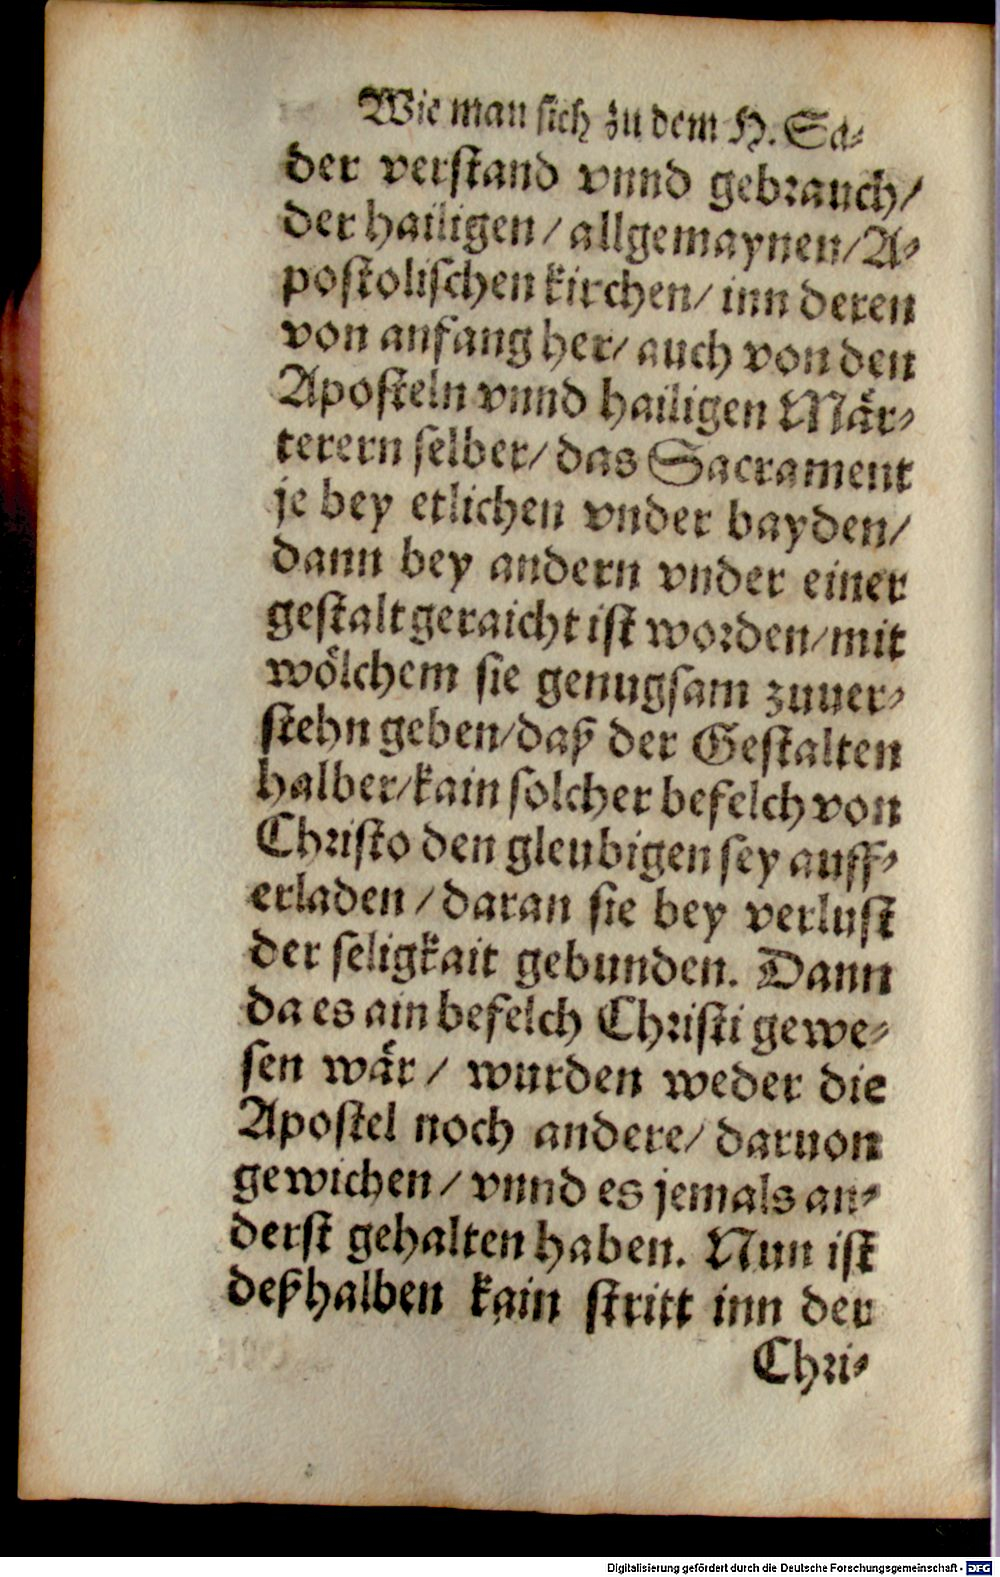 Wie man sich zu dem H. Sa⸗
der verstand vnnd gebrauch/
der hailigen / allgemaynen/A⸗
postolischen kirchen/ inn deren
von anfang her/ auch von den
Aposteln vnnd hailigen Mär⸗
terern selber/ das Sacrament
je bey etlichen vnder bayden/
dann bey andern vnder einer
gestalt geraicht ist worden/mit
wölchem sie genugsam zuuer⸗
stehn geben/daß der Gestalten
halber/kain solcher befelch von
Christo den gleubigen sey auff⸗
erladen / daran sie bey verlust
der seligkait gebunden. Dann
da es ain befelch Christi gewe⸗
sen wär / wurden weder die
Apostel noch andere/ daruon
gewichen / vnnd es jemals an⸗
derst gehalten haben. Nun ist
deßhalben kain stritt inn der
Chri⸗
Digitalisierung gefördert durch die Deutsche Forschungsgemeinschaft - DFG